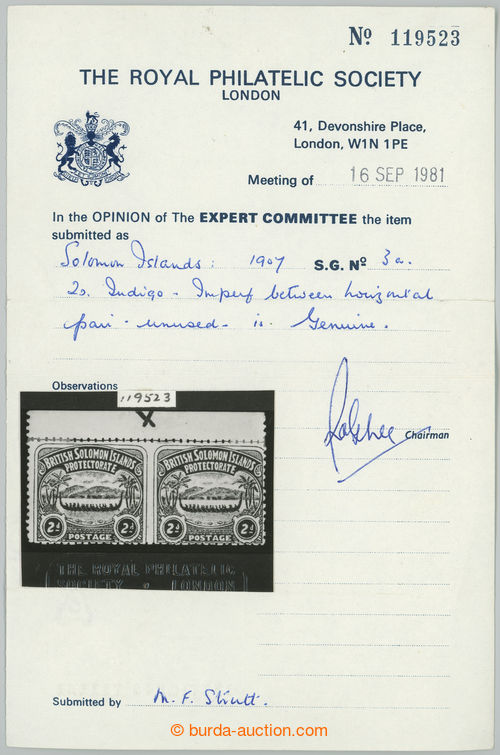 Nº 119523
THE ROYAL PHILATELIC SOCIETY
LONDON
41, Devonshire Place,
London, W1N 1PE
Meeting of 16 SEP 1981
In the OPINION of The EXPERT COMMITTEE the item
submitted as
Solomon Islands: 1907 S.G. Nº 3a.
2d. Indigo - Imperf between horizontal
pair - unused - is Genuine.
Observations
119523
X
Chairman
BRITISH SOLOMON ISLANDS BRITISH SOLOMON ISLANDS
PROTECTORATE PROTECTORATE
2d 2d 2d 2d
POSTAGE POSTAGE
THE ROYAL PHILATELIC
SOCIETY • LONDON
Submitted by M. F. Strutt.
© burda-auction.com